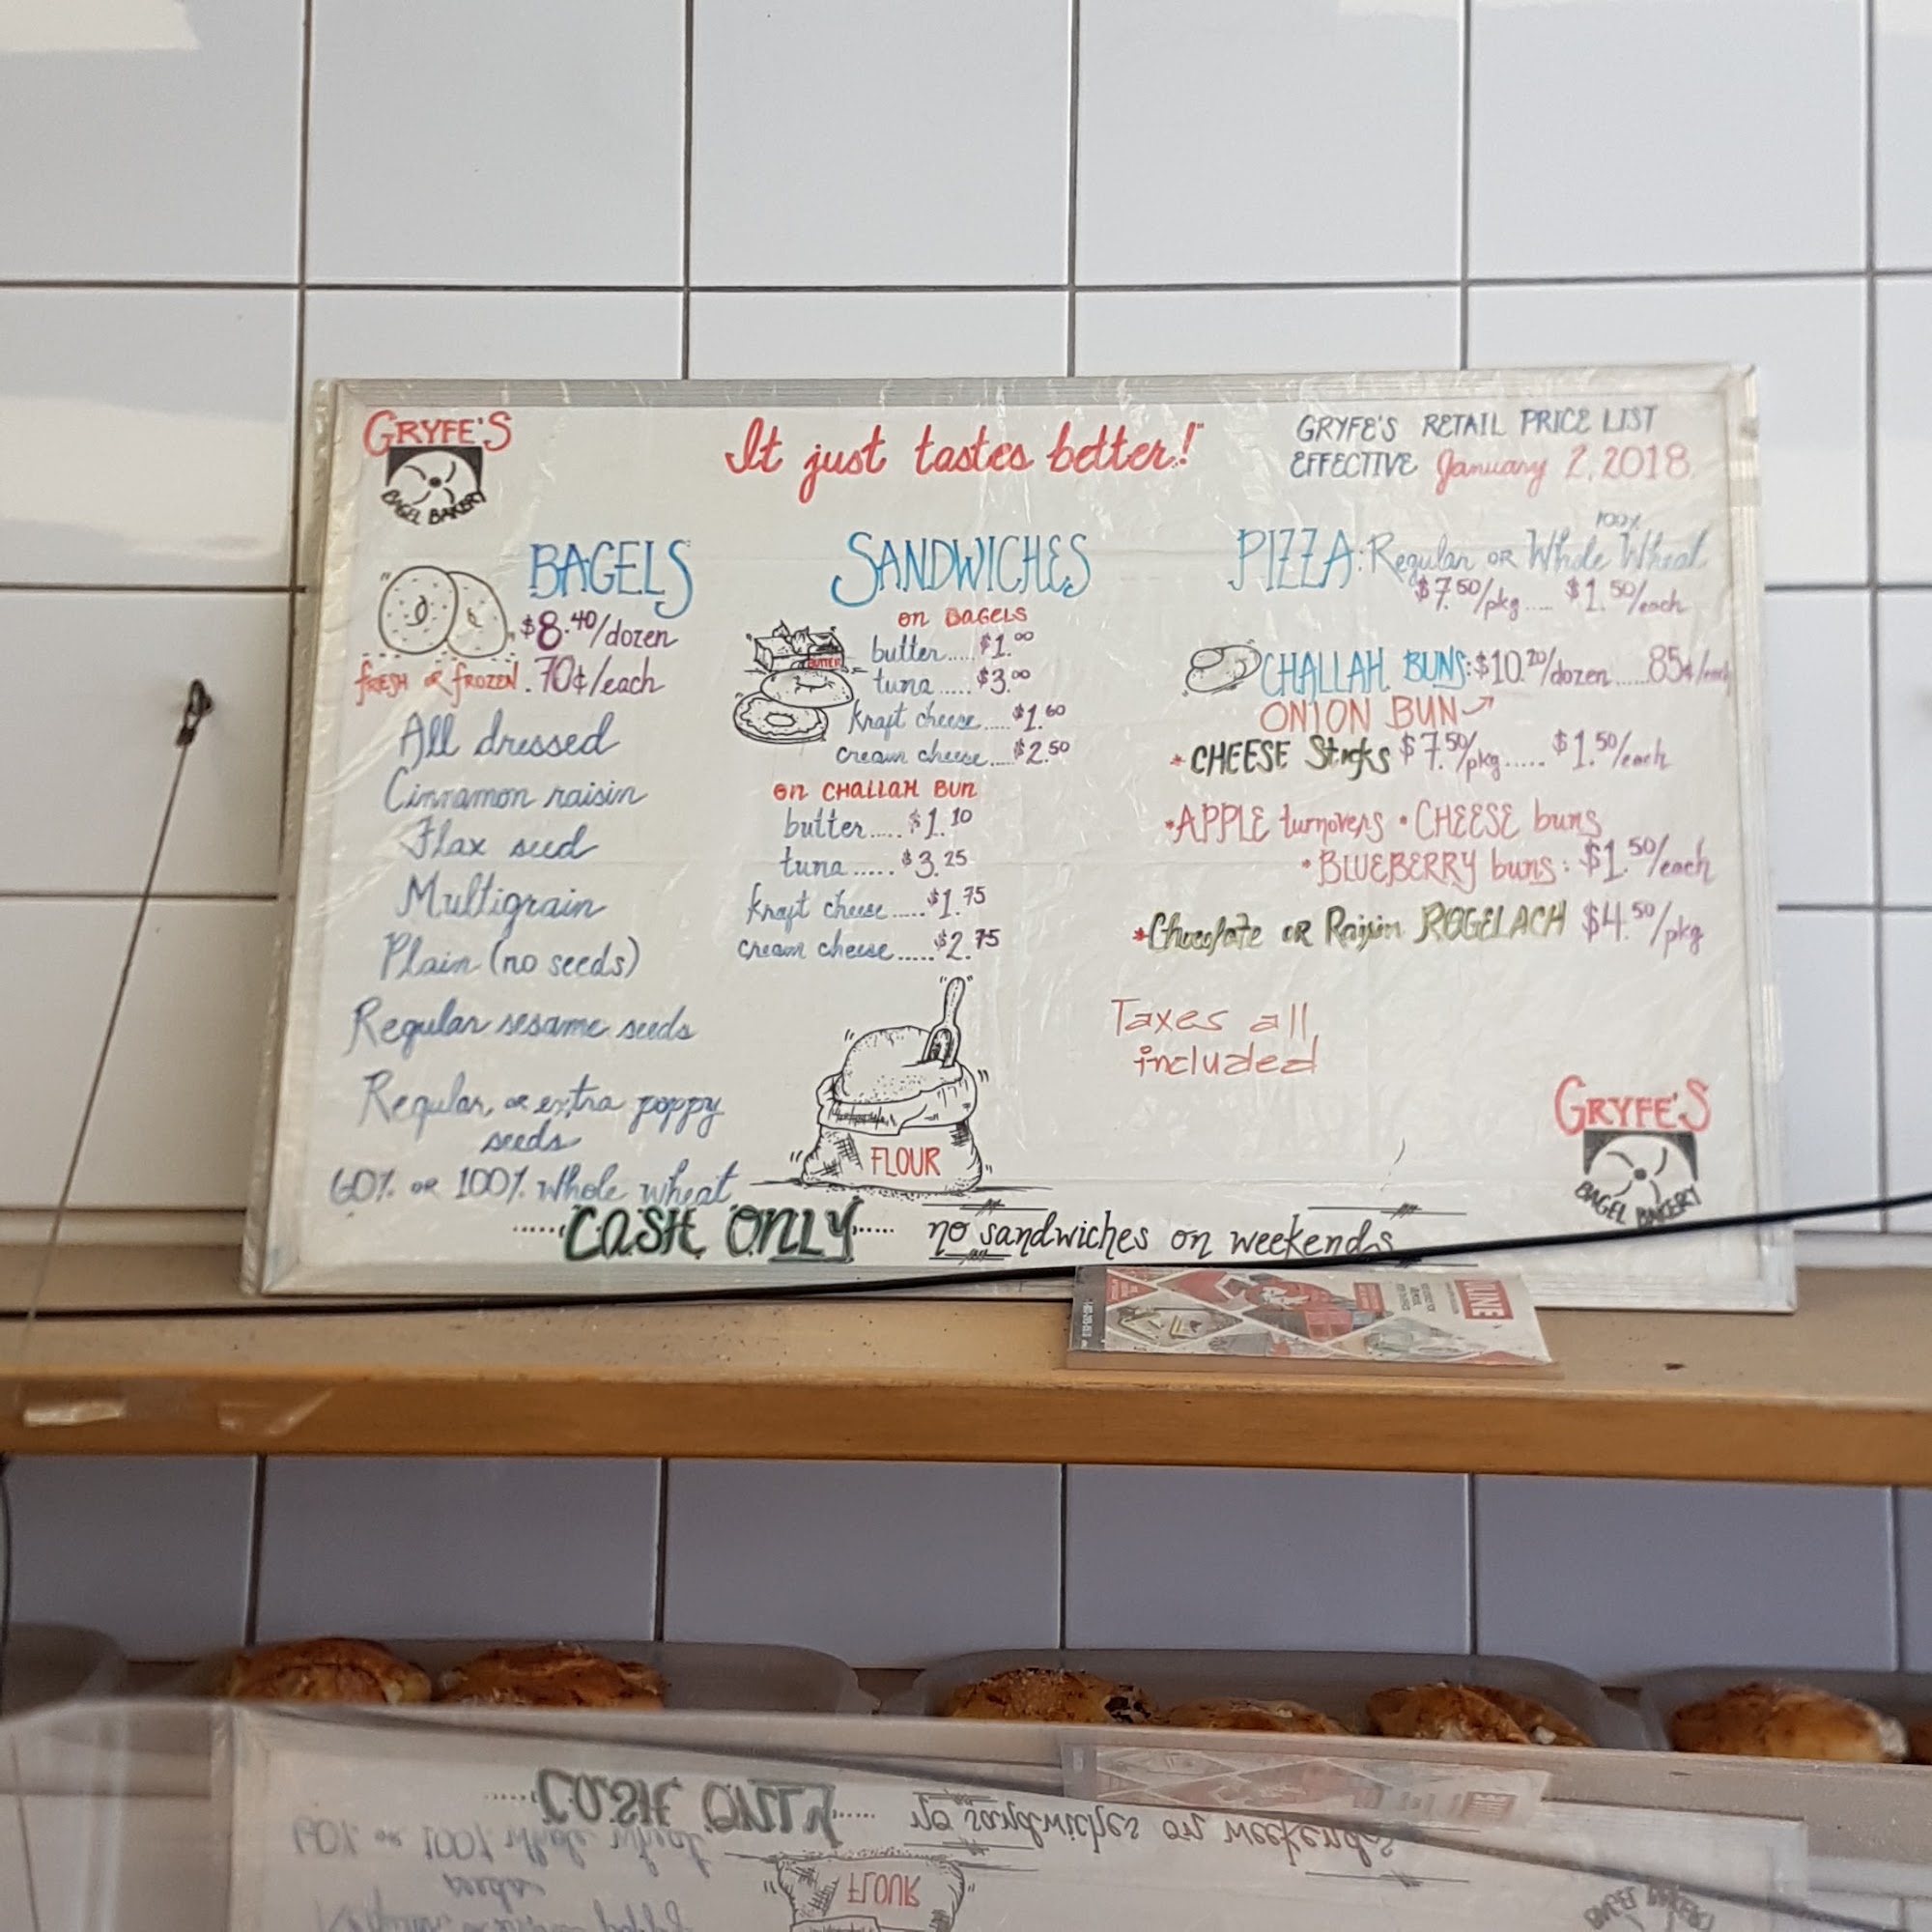 GRYFE'S
BAGEL BAKERY
It just tastes better!
GRYFE'S RETAIL PRICE LIST
EFFECTIVE January 2, 2018
BAGELS
$8.40/dozen
fRESH OR fROZEN. 70¢/each
All dressed
Cinnamon raisin
Flax seed
Multigrain
Plain (no seeds)
Regular sesame seeds
Regular, or extra poppy
seeds
60% OR 100% Whole wheat
SANDWICHES
on BAGELS
BUTTER
butter.....$1.00
tuna.....$3.00
kraft cheese....$1.60
cream cheese....$2.50
on CHALLAH BUN
butter.....$1.10
tuna.....$3.25
kraft cheese.....$1.75
cream cheese.....$2.75
FLOUR
100%
PIZZA: Regular OR Whole Wheat
$7.50/pkg..... $1.50/each
CHALLAH BUNS: $10.20/dozen.....85¢/each
ONION BUN
* CHEESE Sticks $7.50/pkg..... $1.50/each
•APPLE turnovers • CHEESE buns
• BLUEBERRY buns: $1.50/each
*Chocolate OR Raisin ROGELACH $4.50/pkg
Taxes all
included
GRYFE'S
BAGEL BAKERY
.....CASH ONLY..... no sandwiches on weekends